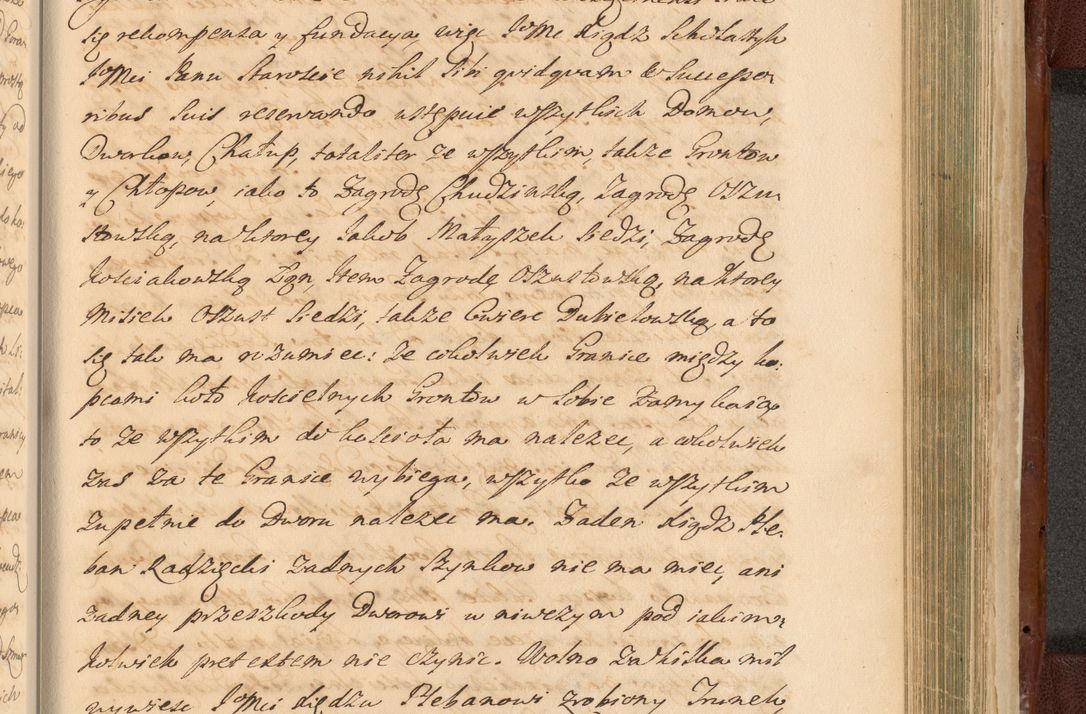 się rekompensa y fundacya, więc JoMc Xiądz Scholastyk
JoMci Panu Staroscie nihil Sibi quidquam & Successo
ribus Suis reservando ustępuie wszytkich Domow,
Dworkow, Chałup, totaliter ze wszytkim, także Grontow
y Chłopow, iako to Zagrodę Chudzinską, Zagrodę Oszu
stowską, na ktorey Jakub Matyszek siedzi, Zagrodę
Kosciakowską Item Zagrodę Oszustowską, na ktorey
Misiek Oszust siedzi, także Cwierc Dubielowską, a to
się tak ma rozumiec: że cokolwiek Granice między ko,
pcami koło Koscielnych Grontow w sobie zamykaią
to ze wszytkim do koscioła ma należec, a cokolwiek
zas za te Granice wybiega, wszytko ze wszytkim
zupełnie do Dworu należec ma. Zaden Xiądz Ple,
ban Radzięcki żadnych Szynkow nie ma miec, ani
żadney przeszkody Dworowi w niwczym pod iakim,
kolwiek pretextem nie czynic. Wolno za kilka mil
wywiesc JoMci Xiędzu Plebanowi zrobiony Trunek,